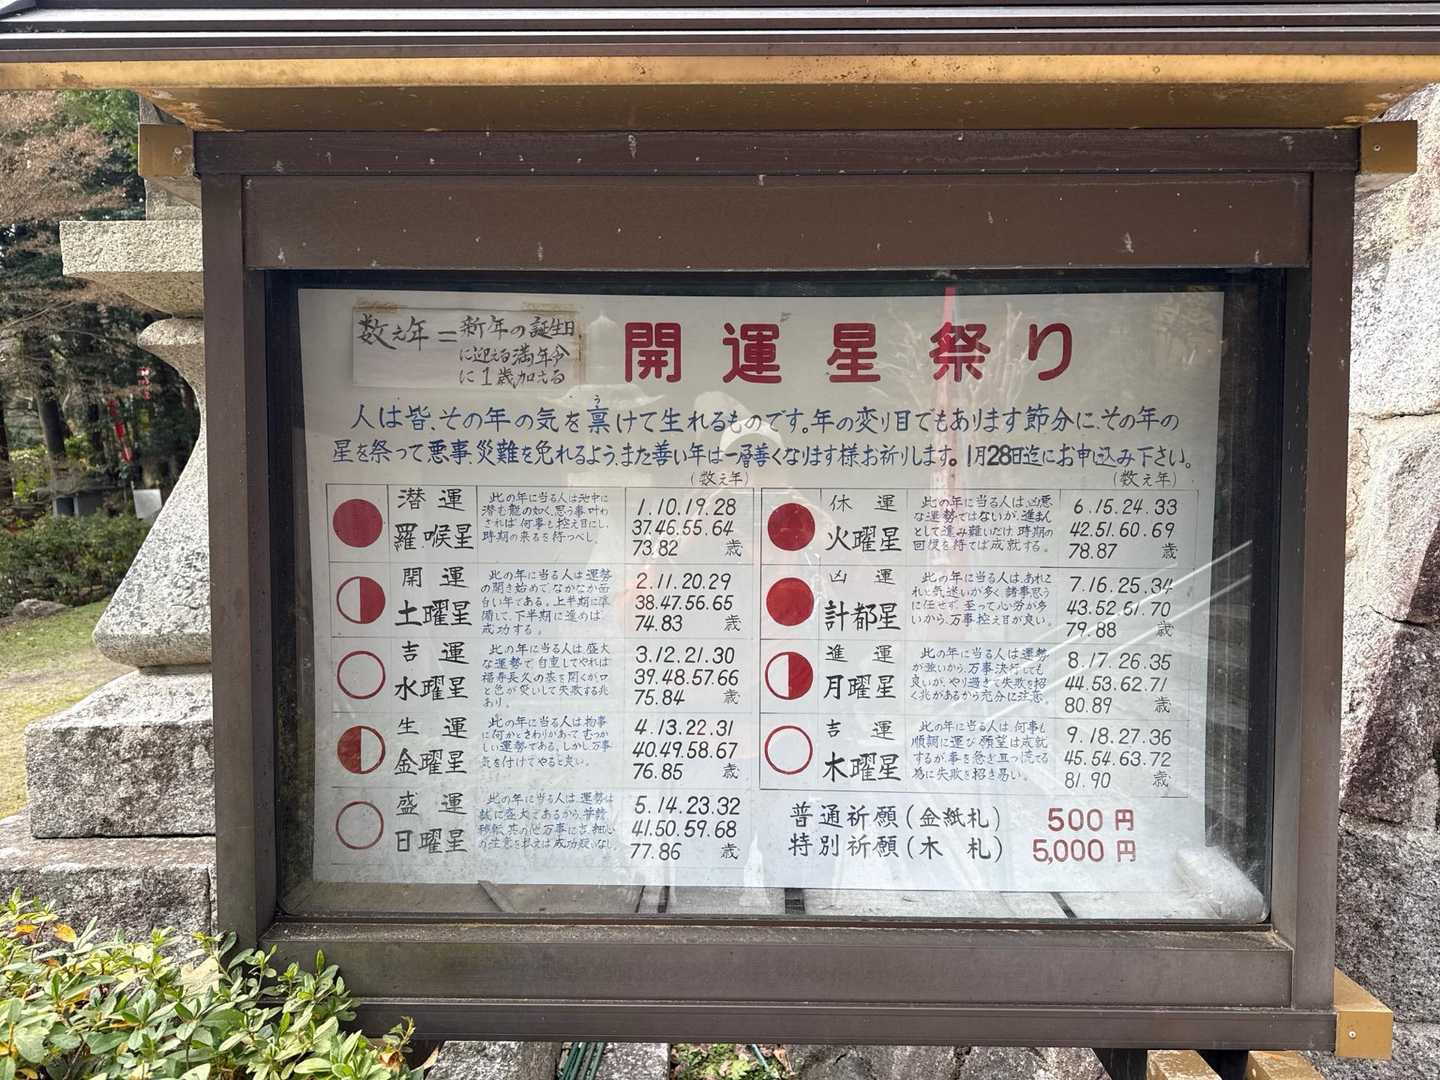 数え年=新年の誕生日
に迎える満年令
に1歳加える
開運星祭り
人は皆、その年の気を稟けて生れるものです。年の変り目でもあります節分に、その年の
う
星を祭って悪事、災難を免れるよう、また善い年は一層善くなります様お祈りします。1月28日迄にお申込み下さい。
(数え年)
潜運
羅喉星
此の年に当る人は池中に
潜む龍の如く、思う事叶わ
ざれば何事も控え目にし、
時期の来るを待つべし。
1.10.19.28
37.46.55.64
73.82 歳
開運
土曜星
此の年に当る人は運勢
の開き始めで、なかなか面
白い年である。上半期に準
備して、下半期に進めば、
成功する。
2.11.20.29
38.47.56.65
74.83 歳
吉運
水曜星
此の年に当る人は、盛大
な運勢で自重してやれば
福寿長久の基を開くが、口
と色が災いして失敗する兆
あり。
3.12.21.30
39.48.57.66
75.84 歳
生運
金曜星
此の年に当る人は物事
に何かとさわりがあってむつか
しい運勢である。しかし万事
気を付けてやると良い。
4.13.22.31
40.49.58.67
76.85 歳
盛運
日曜星
此の年に当る人は、運勢は
誠に盛大であるから、普請
移転、其の他万事に吉、細い
注意を払えば成功疑いなし。
5.14.23.32
41.50.59.68
77.86 歳
(数え年)
休運
火曜星
此の年に当る人は、凶悪
な運勢ではないが、進まん
として進み難いだけ、時期の
回復を待てば成就する。
6.15.24.33
42.51.60.69
78.87 歳
凶運
計都星
此の年に当る人は、あれこ
れと気迷いが多く、諸事思う
に任せず、至って心労が多
いから、万事控え目が良い。
7.16.25.34
43.52.61.70
79.88 歳
進運
月曜星
此の年に当る人は運勢
が強いから、万事決行しても
良いが、やり過ぎて失敗を招
く兆があるから充分に注意。
8.17.26.35
44.53.62.71
80.89 歳
吉運
木曜星
此の年に当る人は、何事も
順調に運び願望は成就
するが、事を急ぎ且つ慌てる
為に失敗を招き易い。
9.18.27.36
45.54.63.72
81.90 歳
普通祈願(金紙札) 500円
特別祈願(木札) 5,000円